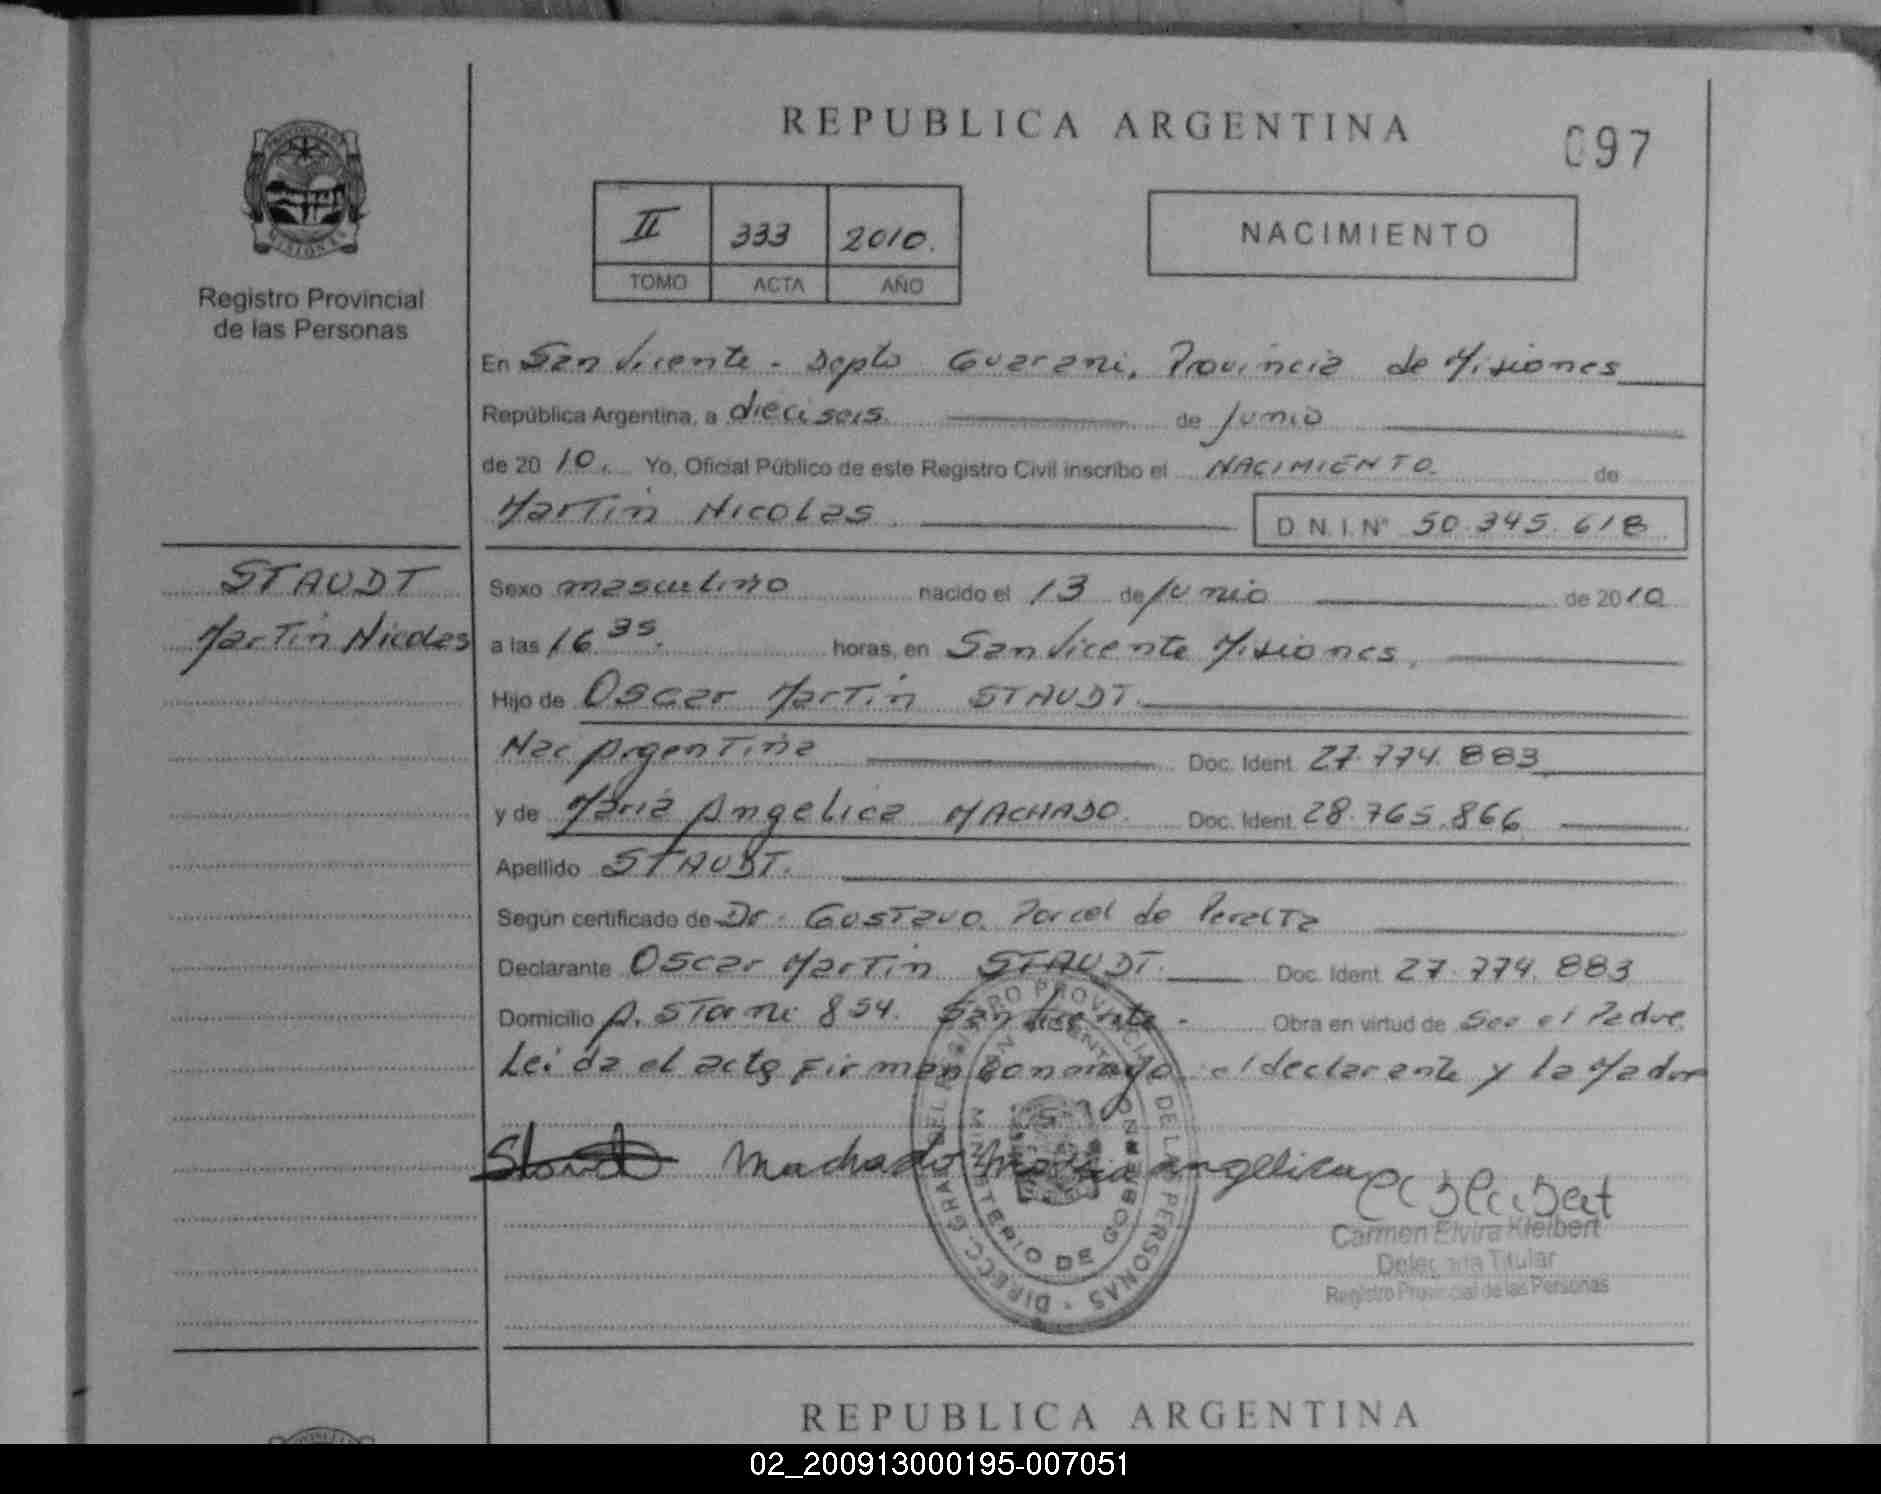 REPUBLICA ARGENTINA
097
PROVINCIA DE MISIONES
Registro Provincial
de las Personas
II 333 2010.
TOMO ACTA AÑO
NACIMIENTO
En San Vicente - Depto Guarani, Provincia de Misiones
República Argentina, a dieciseis de Junio
de 2010. Yo, Oficial Público de este Registro Civil inscribo el NACIMIENTO. de
Martin Nicolas D.N.I.Nº 50.345.618
STAUDT
Martin Nicolas
Sexo masculino nacido el 13 de Junio de 2010
a las 16 35. horas, en San Vicente Misiones,
Hijo de Oscar Martin STAUDT.
Nac Argentina Doc. Ident. 27.774.883
y de Maria Angelica MACHADO. Doc. Ident. 28.765.866
Apellido STAUDT.
Según certificado de Dr. Gustavo Porcel de Peralta
Declarante Oscar Martin STAUDT. Doc. Ident. 27.774.883
Domicilio A. Storni 854. San Vicente - Obra en virtud de Ser el Padre
Leida el acta firman conmigo el declarante y la Madre
Machado Maria angelica
DIRECC. GRAL DEL REGISTRO PROVINCIAL DE LAS PERSONAS
MINISTERIO DE GOBIERNO
Carmen Elvira Kleibert
Delegada Titular
Registro Provincial de las Personas
REPUBLICA ARGENTINA
02_200913000195-007051